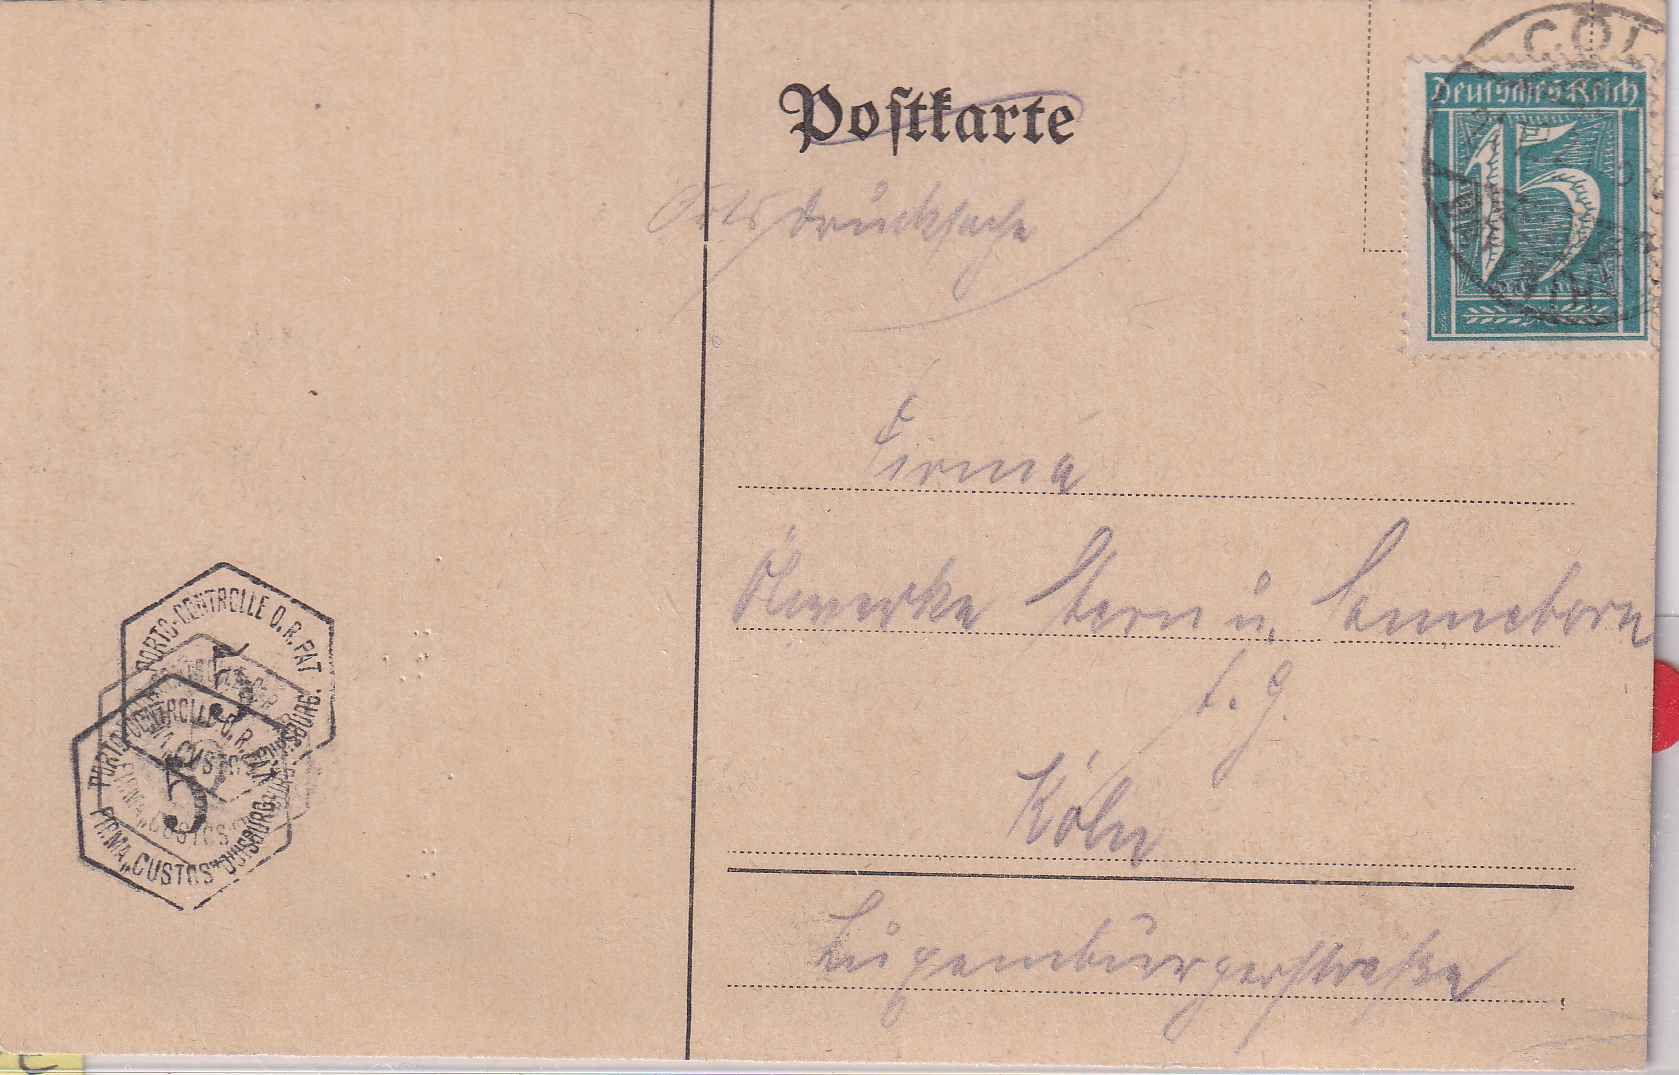 Postkarte
Ortsdrucksache
COL
Deutsches Reich
15
Firma
Ölwerke Stern u. Sonneborn
A. G.
Köln
Luxemburgerstraße
PORTO-CONTROLLE D.R.PAT
5
FIRMA „CUSTOS" DUISBURG.
PORTO-CONTROLLE D.R.PAT
5
FIRMA „CUSTOS" DUISBURG.